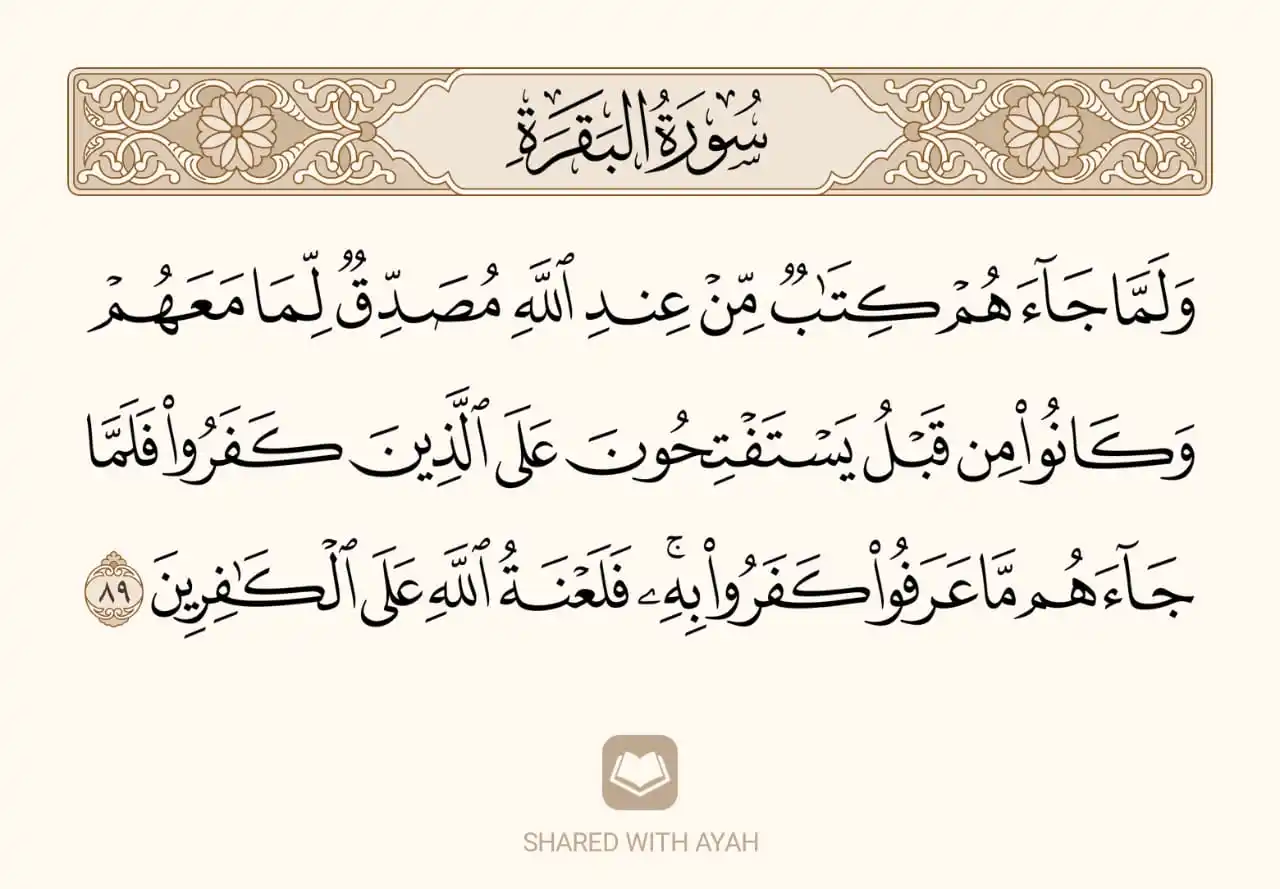 سُورَةُ البَقَرَةِ
وَلَمَّا جَآءَهُمۡ كِتَٰبٞ مِّنۡ عِندِ ٱللَّهِ مُصَدِّقٞ لِّمَا مَعَهُمۡ
وَكَانُواْ مِن قَبۡلُ يَسۡتَفۡتِحُونَ عَلَى ٱلَّذِينَ كَفَرُواْ فَلَمَّا
جَآءَهُم مَّا عَرَفُواْ كَفَرُواْ بِهِۦۚ فَلَعۡنَةُ ٱللَّهِ عَلَى ٱلۡكَٰفِرِينَ ٨٩
SHARED WITH AYAH